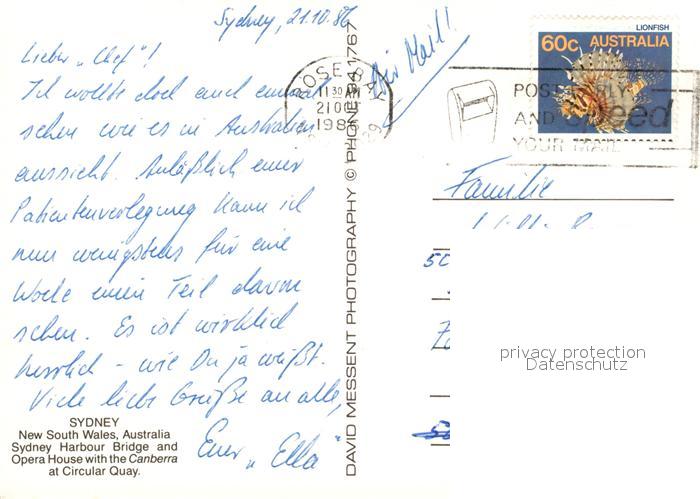 Sydney, 21.10.86
Lieber „Chef“!
Ich wollte doch auch einmal
sehen wie es in Australien
aussieht. Anläßlich einer
Patientenverlegung kann ich
nun wenigstens für eine
Woche einen Teil davon
sehen. Es ist wirklich
herrlich - wie Du ja weißt.
Viele liebe Grüße an alle,
Euer „Ella“
SYDNEY
New South Wales, Australia
Sydney Harbour Bridge and
Opera House with the Canberra
at Circular Quay.
DAVID MESSENT PHOTOGRAPHY © PHONE 94 1767
Air Mail!
ROSE BAY
11 30 AM
21 OC
198
29
LIONFISH
60c AUSTRALIA
POST EARLY
AND speed
YOUR MAIL
Familie
50
privacy protection
Datenschutz